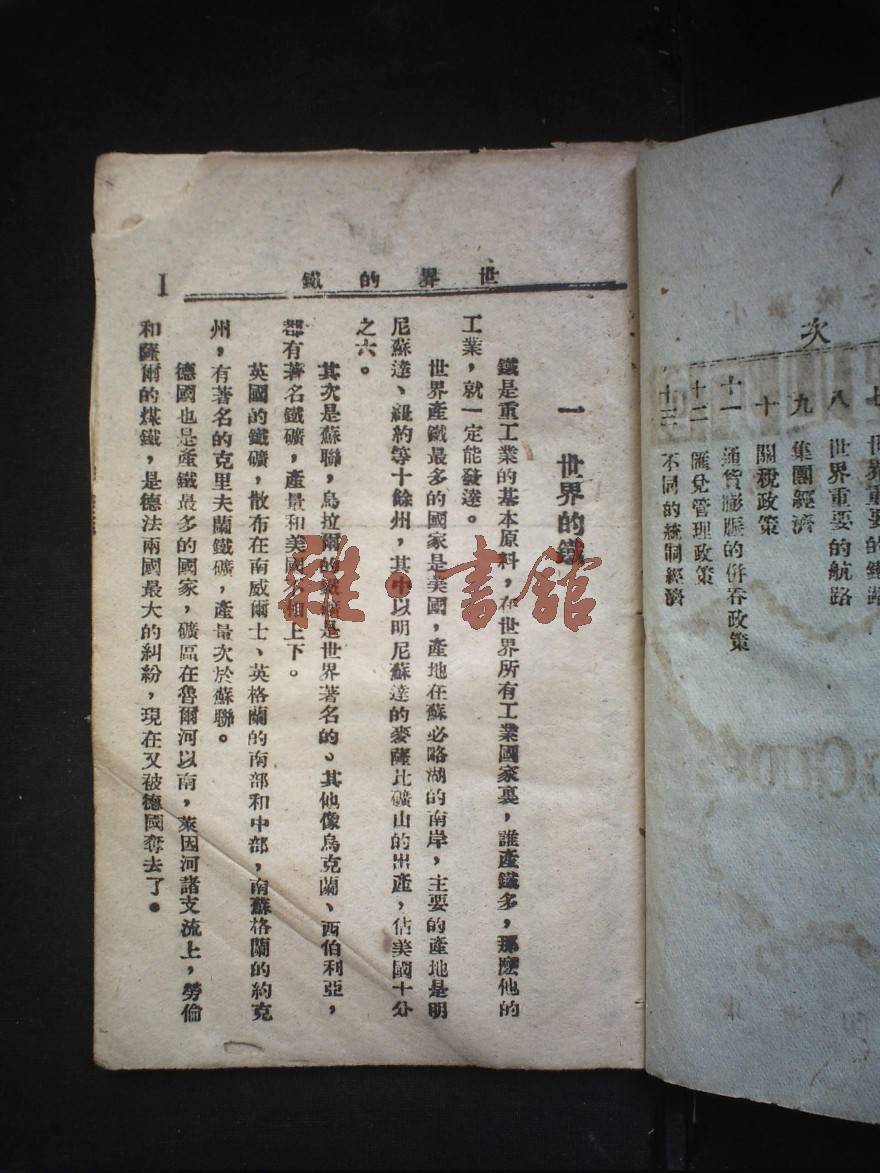 次
世界重要的鐵路
八 世界重要的航路
九 集團經濟
十 關稅政策
十一 通貨膨脹的併吞政策
十二 匯兌管理政策
十三 不同的統制經濟
世界的鐵
1
一 世界的鐵
鐵是重工業的基本原料，在世界所有工業國家裏，誰產鐵多，那麼他的
工業，就一定能發達。
世界產鐵最多的國家是美國，產地在蘇必略湖的南岸，主要的產地是明
尼蘇達、紐約等十餘州，其中以明尼蘇達的麥薩比礦山的出產，佔美國十分
之六。
其次是蘇聯，烏拉爾的鐵礦是世界著名的、其他像烏克蘭、西伯利亞，
都有著名鐵礦，產量和美國不相上下。
英國的鐵礦，散布在南威爾士、英格蘭的南部和中部，南蘇格蘭的約克
州，有著名的克里夫蘭鐵礦，產量次於蘇聯。
德國也是產鐵最多的國家，礦區在魯爾河以南，萊因河諸支流上，勞倫
和薩爾的煤鐵，是德法兩國最大的糾紛，現在又被德國奪去了。
雜·書館